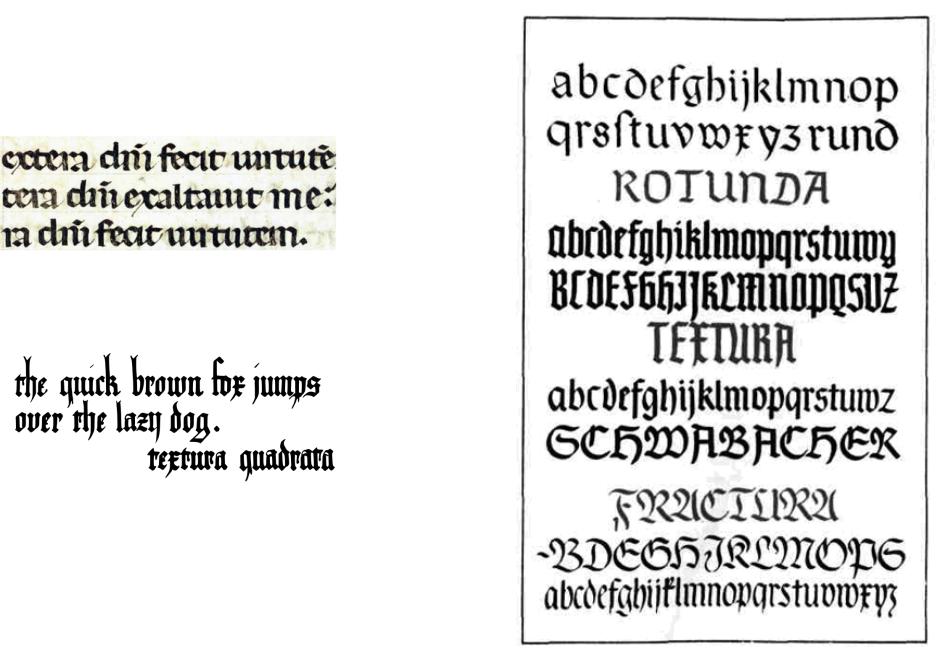 extera dñi fecit uirtutē
tera dñi exaltauit me:
ra dñi fecit uirtutem.
the quick brown fox jumps
over the lazy dog.
textura quadrata
abcdefghijklmnop
qrsſtuvwxyz rund
ROTUNDA
abcdefghiklmopqrstuwy
BCDEFGHIJKLMNOPQSUZ
TEXTURA
abcdefghijklmopqrstuwz
SCHWABACHER
FRACTURA
-BDEGHJKLMOPS
abcdefghijklmnopqrstuvwxyz